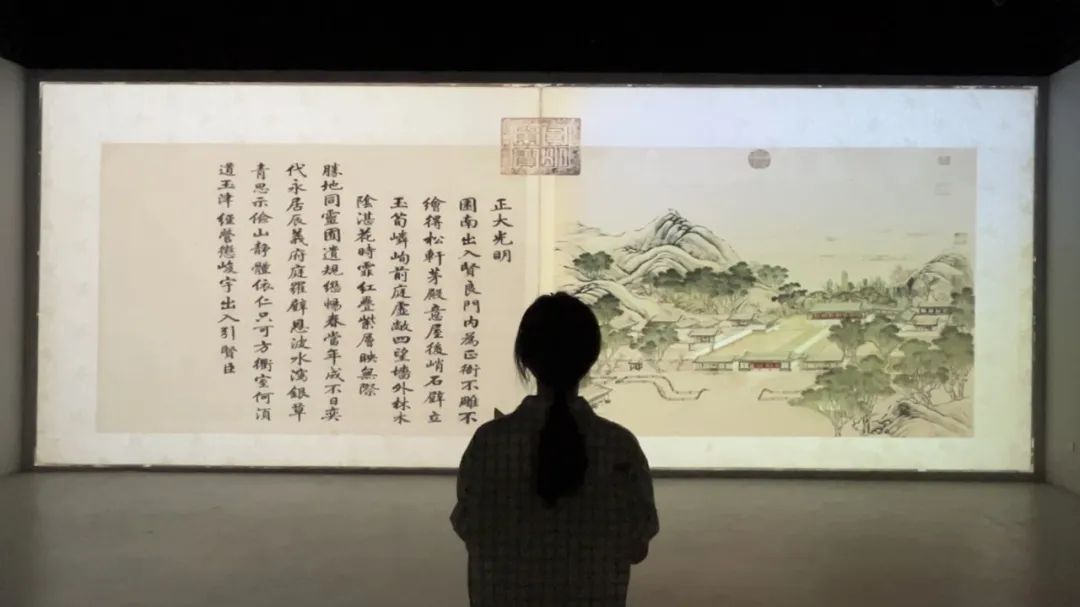 正大光明
園南出入賢良門內為正衙不雕不
繪得松軒茅殿意屋後峭石壁立
玉筍嶙峋前庭虛敞四望墻外林木
陰湛花時霏紅疊紫層映無際
勝地同靈囿遺規繼暢春當年成不日奕
代永居辰義府庭羅壁恩波水瀉銀草
青思示儉山靜體依仁只可方衢室何須
道玉津經營懋峻宇出入引賢臣